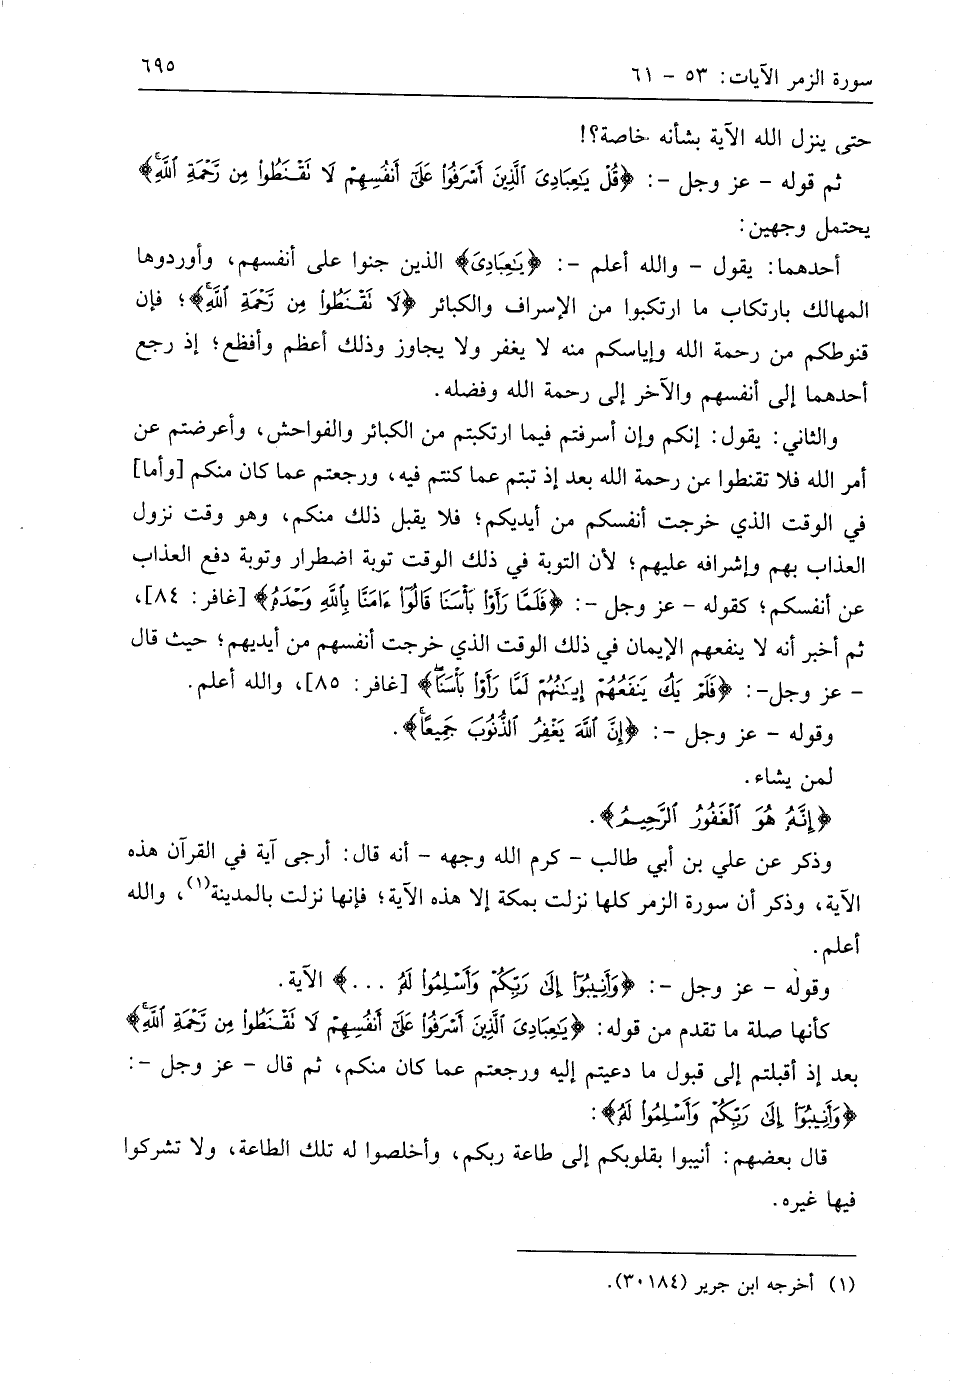 سورة الزمر الآيات: ٥٣ - ٦١
٦٩٥
حتى ينزل الله الآية بشأنه خاصة؟!
ثم قوله - عز وجل -: ﴿قُلْ يَٰعِبَادِىَ ٱلَّذِينَ أَسْرَفُوا۟ عَلَىٰٓ أَنفُسِهِمْ لَا تَقْنَطُوا۟ مِن رَّحْمَةِ ٱللَّهِۚ﴾
يحتمل وجهين:
أحدهما: يقول - والله أعلم -: ﴿يَٰعِبَادِىَ﴾ الذين جنوا على أنفسهم، وأوردوها
المهالك بارتكاب ما ارتكبوا من الإسراف والكبائر ﴿لَا تَقْنَطُوا۟ مِن رَّحْمَةِ ٱللَّهِۚ﴾؛ فإن
قنوطكم من رحمة الله وإياسكم منه لا يغفر ولا يجاوز وذلك أعظم وأفظع؛ إذ رجع
أحدهما إلى أنفسهم والآخر إلى رحمة الله وفضله.
والثاني: يقول: إنكم وإن أسرفتم فيما ارتكبتم من الكبائر والفواحش، وأعرضتم عن
أمر الله فلا تقنطوا من رحمة الله بعد إذ تبتم عما كنتم فيه، ورجعتم عما كان منكم [وأما]
في الوقت الذي خرجت أنفسكم من أيديكم؛ فلا يقبل ذلك منكم، وهو وقت نزول
العذاب بهم وإشرافه عليهم؛ لأن التوبة في ذلك الوقت توبة اضطرار وتوبة دفع العذاب
عن أنفسكم؛ كقوله - عز وجل -: ﴿فَلَمَّا رَأَوْا۟ بَأْسَنَا قَالُوٓا۟ ءَامَنَّا بِٱللَّهِ وَحْدَهُۥ﴾ [غافر: ٨٤]،
ثم أخبر أنه لا ينفعهم الإيمان في ذلك الوقت الذي خرجت أنفسهم من أيديهم؛ حيث قال
- عز وجل-: ﴿فَلَمْ يَكُ يَنفَعُهُمْ إِيمَٰنُهُمْ لَمَّا رَأَوْا۟ بَأْسَنَاۖ﴾ [غافر: ٨٥]، والله أعلم.
وقوله - عز وجل -: ﴿إِنَّ ٱللَّهَ يَغْفِرُ ٱلذُّنُوبَ جَمِيعًاۚ﴾.
لمن يشاء.
﴿إِنَّهُۥ هُوَ ٱلْغَفُورُ ٱلرَّحِيمُ﴾.
وذكر عن علي بن أبي طالب - كرم الله وجهه - أنه قال: أرجى آية في القرآن هذه
الآية، وذكر أن سورة الزمر كلها نزلت بمكة إلا هذه الآية؛ فإنها نزلت بالمدينة(١)، والله
أعلم.
وقوله - عز وجل -: ﴿وَأَنِيبُوٓا۟ إِلَىٰ رَبِّكُمْ وَأَسْلِمُوا۟ لَهُۥ ...﴾ الآية.
كأنها صلة ما تقدم من قوله: ﴿يَٰعِبَادِىَ ٱلَّذِينَ أَسْرَفُوا۟ عَلَىٰٓ أَنفُسِهِمْ لَا تَقْنَطُوا۟ مِن رَّحْمَةِ ٱللَّهِۚ﴾
بعد إذ أقبلتم إلى قبول ما دعيتم إليه ورجعتم عما كان منكم، ثم قال - عز وجل -:
﴿وَأَنِيبُوٓا۟ إِلَىٰ رَبِّكُمْ وَأَسْلِمُوا۟ لَهُۥ﴾:
قال بعضهم: أنيبوا بقلوبكم إلى طاعة ربكم، وأخلصوا له تلك الطاعة، ولا تشركوا
فيها غيره.
(١) أخرجه ابن جرير (٣٠١٨٤).